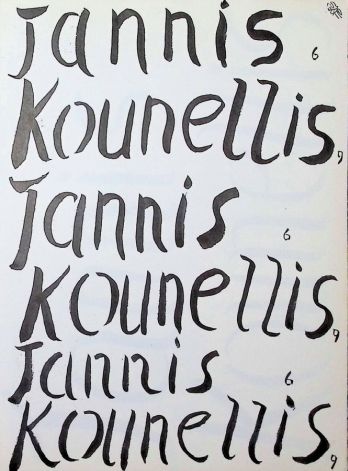 Jannis 6
Kounellis, 9
Jannis 6
Kounellis, 9
Jannis 6
Kounellis, 9